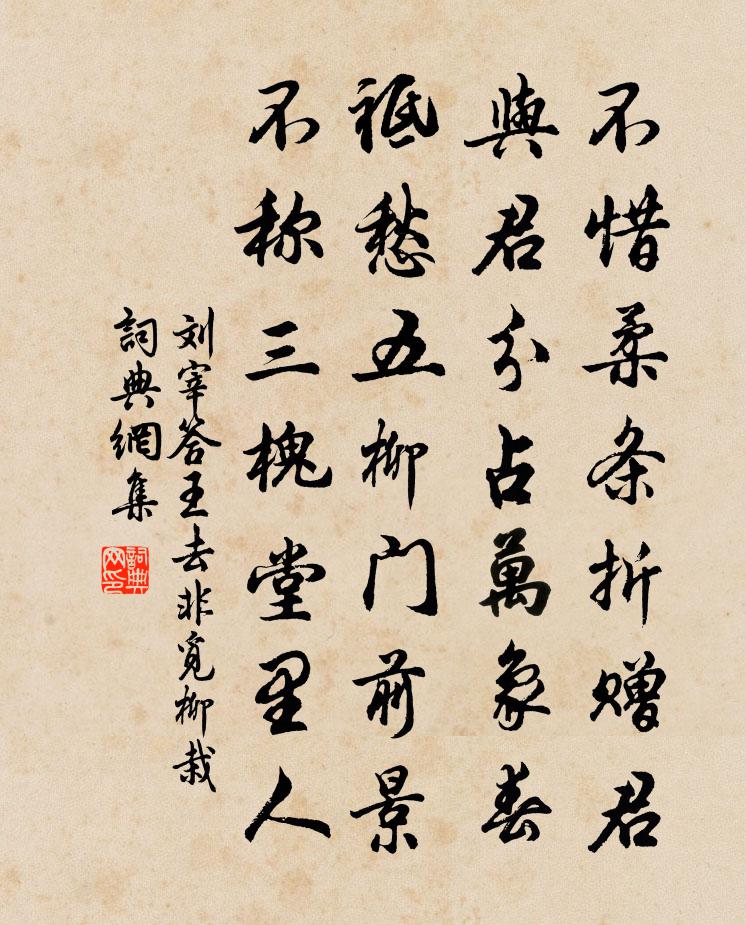 不惜柔条折赠君
與君分占萬象春
祗愁五柳门前景
不称三槐堂里人
刘宰答王去非觅柳栽
詞典網集
詞典网印